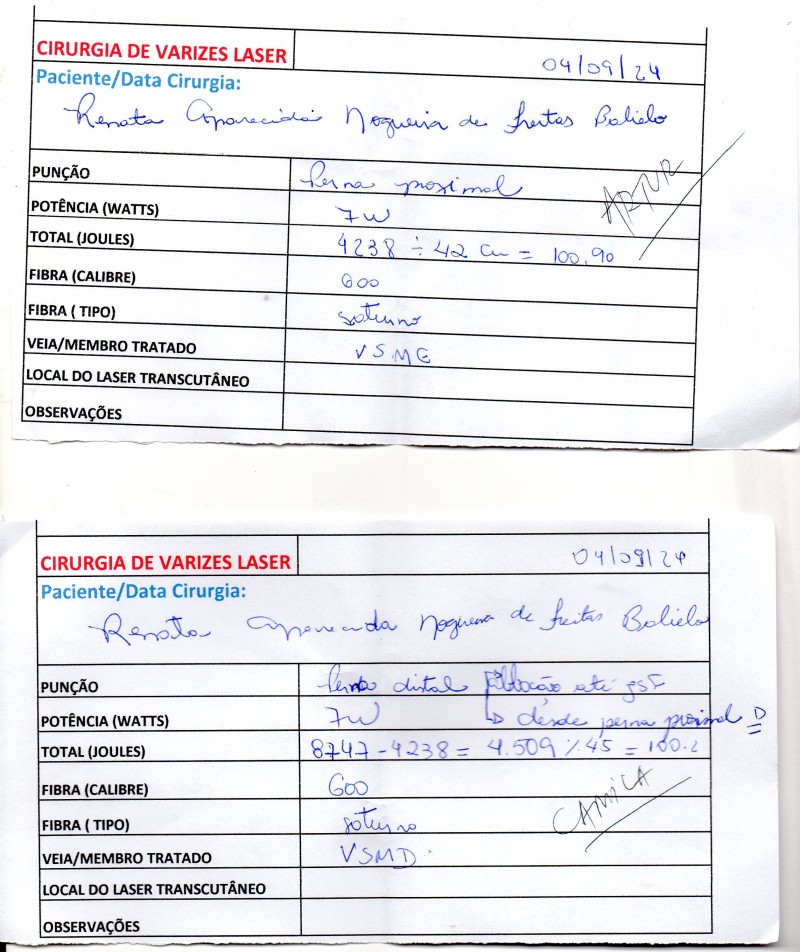 CIRURGIA DE VARIZES LASER 04/09/24
Paciente/Data Cirurgia:
Renata Aparecida Nogueira de Freitas Balielo
PUNÇÃO Perna proximal
ARTUR
POTÊNCIA (WATTS) 7W
TOTAL (JOULES) 4238 ÷ 42 cm = 100,90
FIBRA (CALIBRE) 600
FIBRA ( TIPO) saturno
VEIA/MEMBRO TRATADO VSME
LOCAL DO LASER TRANSCUTÂNEO
OBSERVAÇÕES
CIRURGIA DE VARIZES LASER 04/09/24
Paciente/Data Cirurgia:
Renata Aparecida Nogueira de Freitas Balielo
PUNÇÃO Perna distal ablação até
POTÊNCIA (WATTS) 7W ↳ desde perna proximal D
TOTAL (JOULES) 8747 - 4238 = 4.509 % 45 = 100.2
FIBRA (CALIBRE) 600
CAMILA
FIBRA ( TIPO) saturno
VEIA/MEMBRO TRATADO VSMD
LOCAL DO LASER TRANSCUTÂNEO
OBSERVAÇÕES